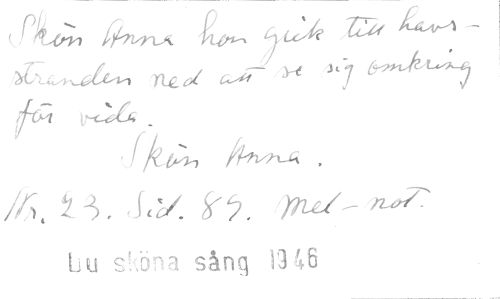 Skön Anna hon gick till havs-
stranden ned att se sig omkring
för vida.
Skön Anna.
Nr. 23. Sid. 89. Mel-not.
Du sköna sång 1946